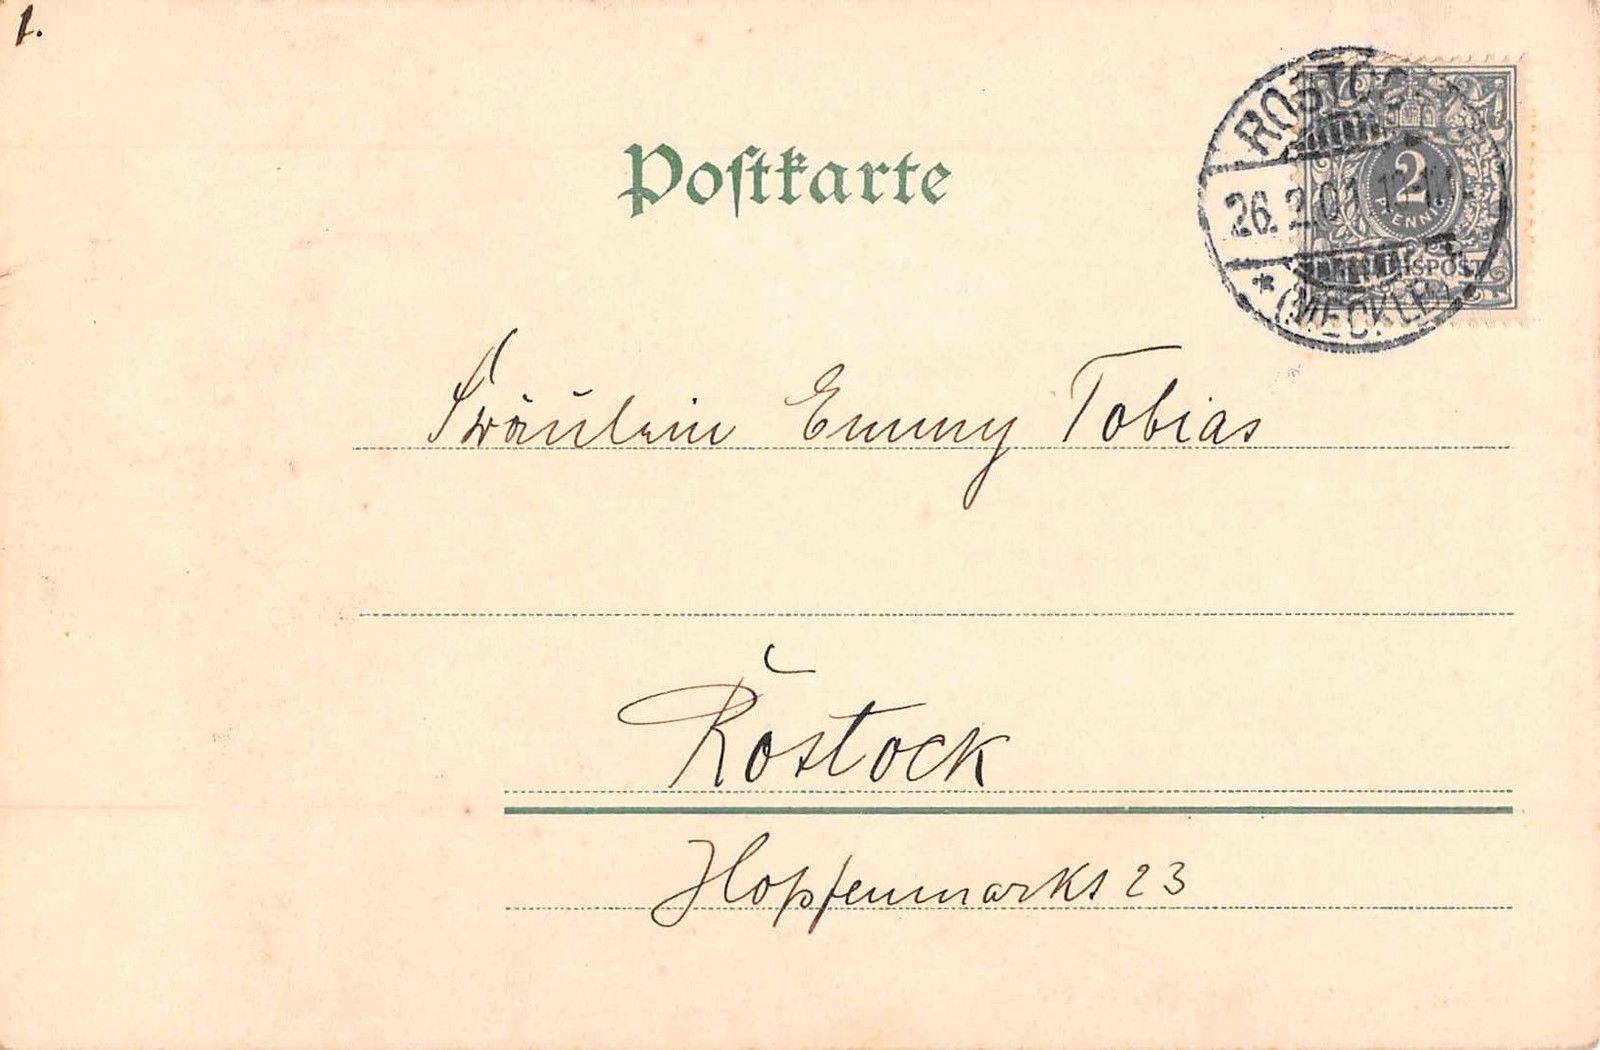 1.
Postkarte
ROSTOCK
26.2.01
* (MECKLB)
2
PFENNIG
REICHSPOST
Fräulein Emmy Tobias
Rostock
Hopfenmarkt 23